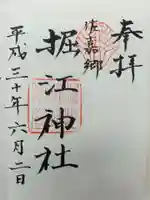 奉拝
佐嘉郷
堀江神社
平成三十年六月二日